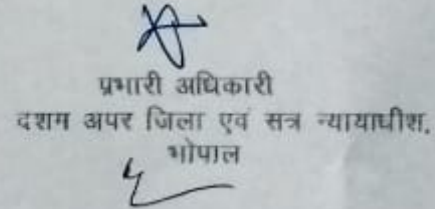 प्रभारी अधिकारी
दशम अपर जिला एवं सत्र न्यायाधीश,
भोपाल